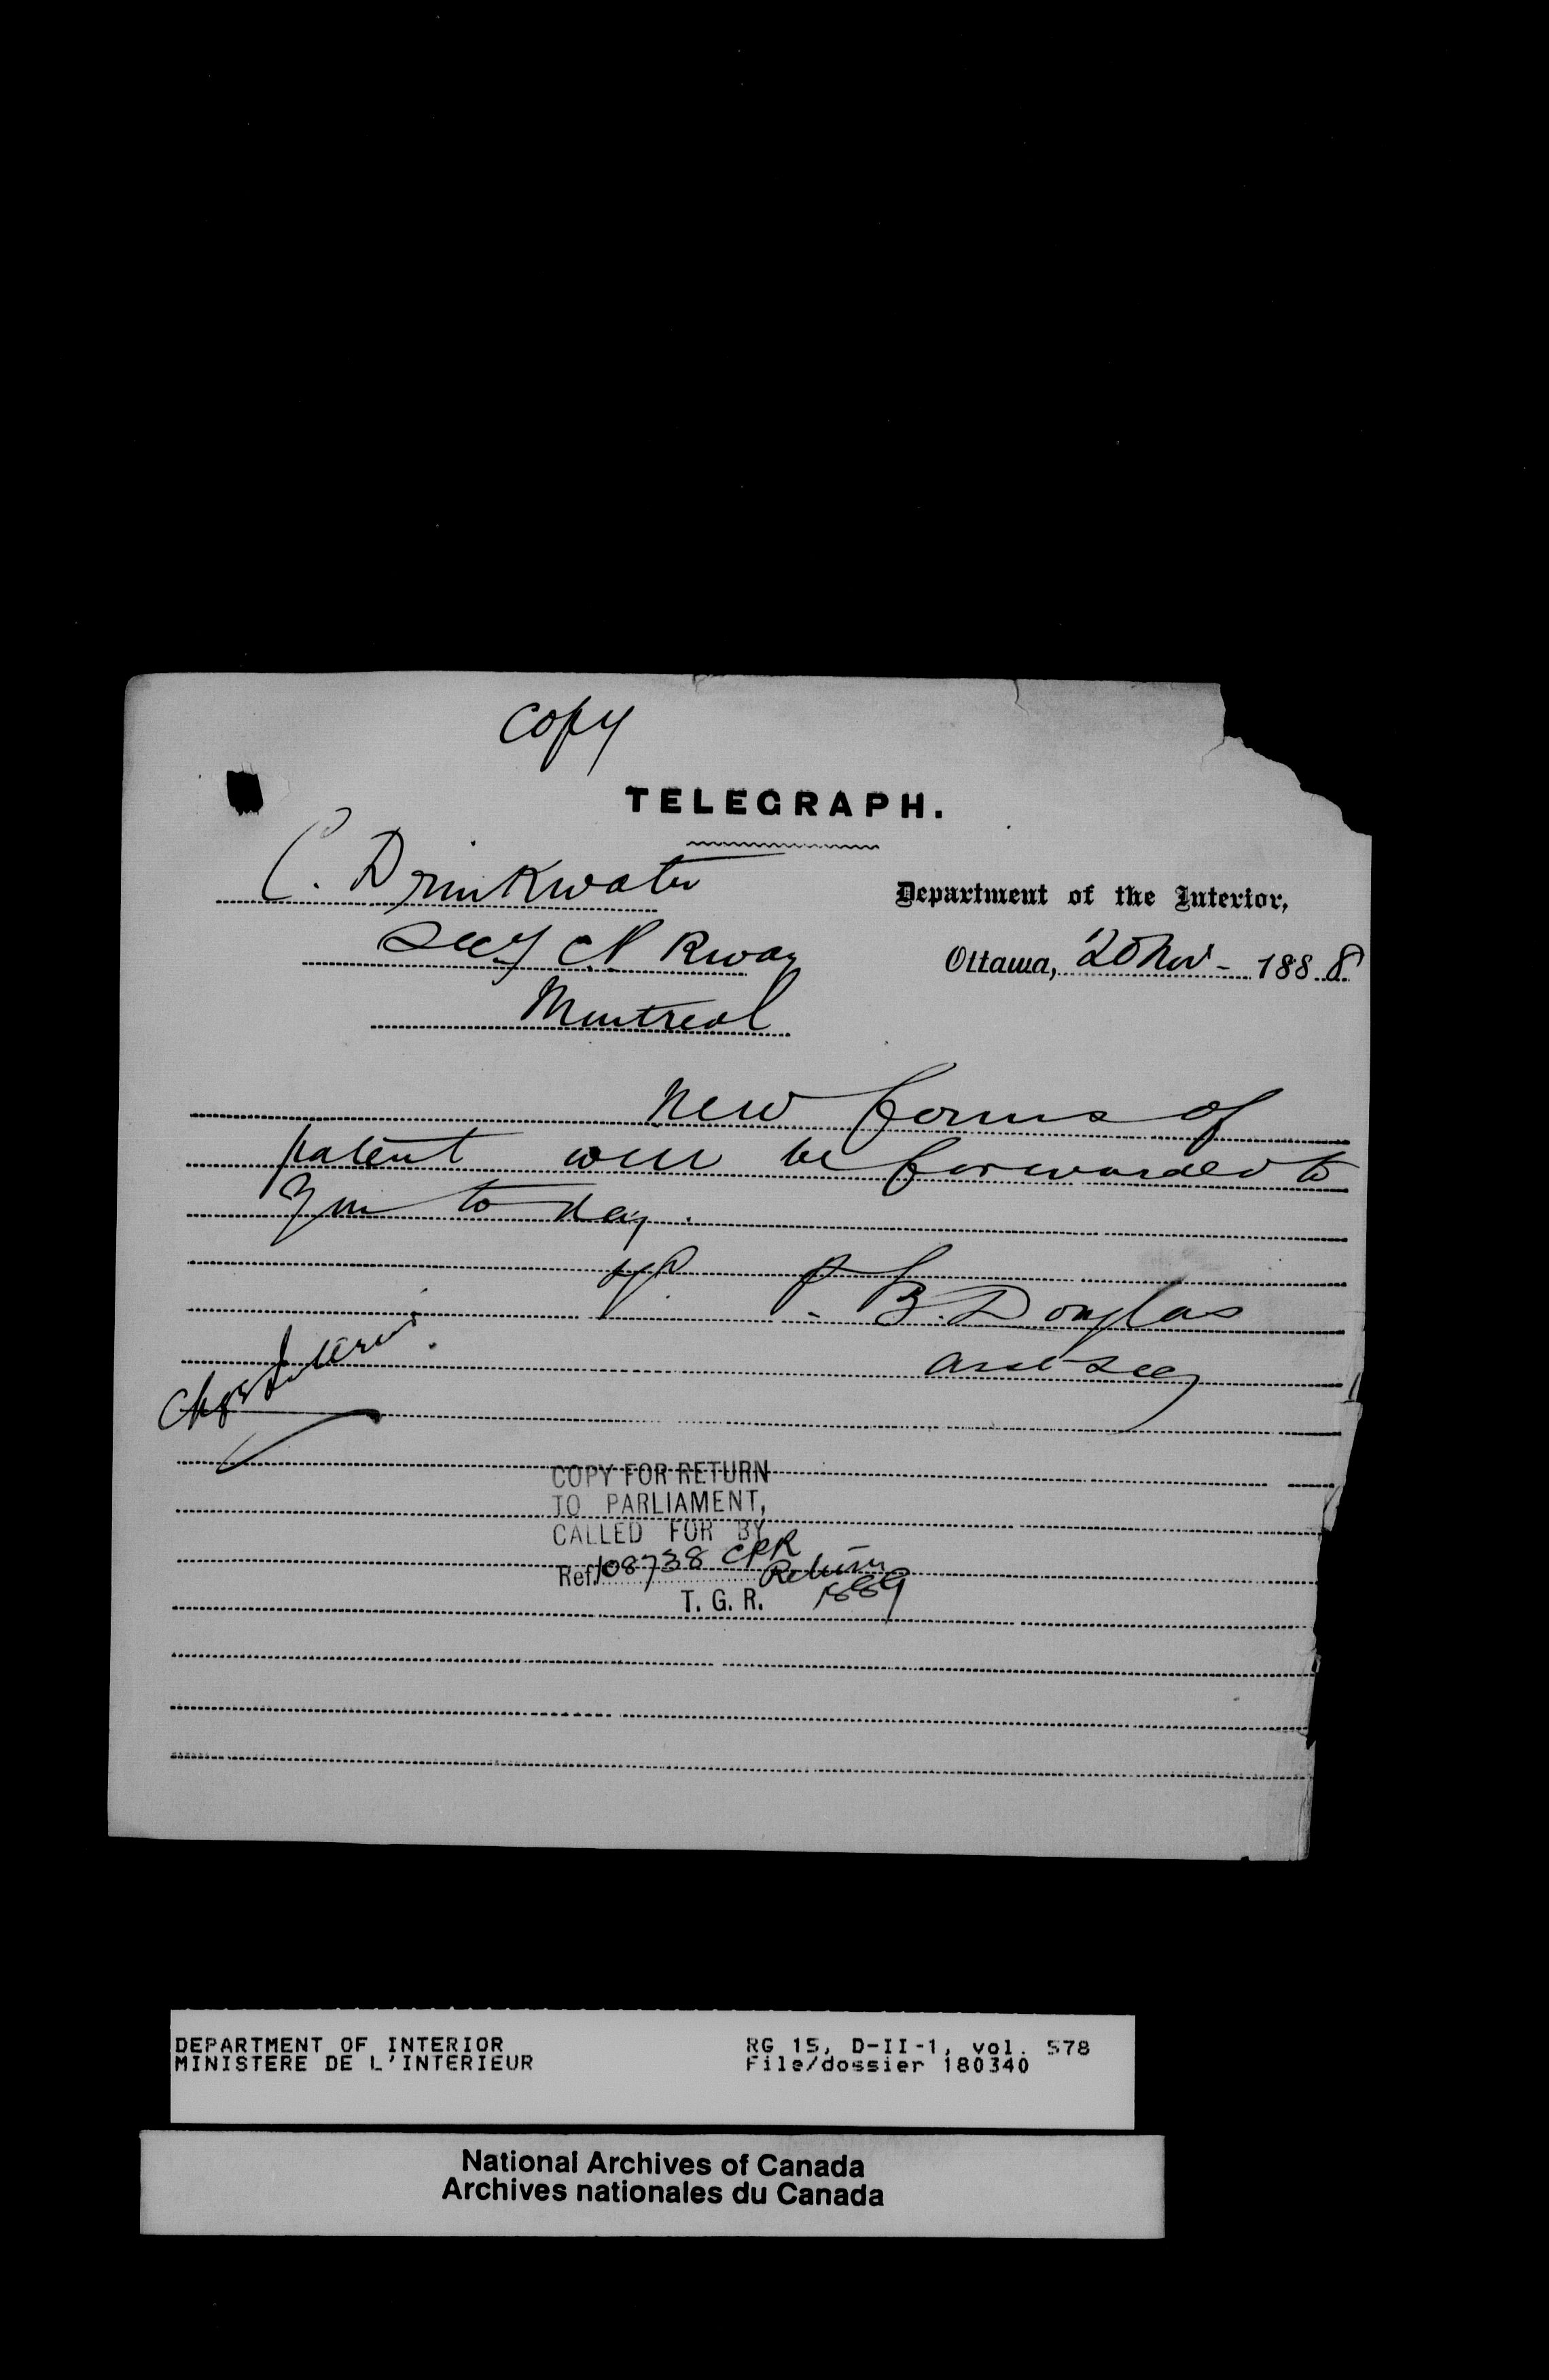 Copy
TELEGRAPH.
C. Drinkwater
Secy C.P. Rway
Montreal
Department of the Interior,
Ottawa, 20 Nov - 1888
New forms of
patent will be forwarded to
you to day.
B. Douglas
Asst Secy
COPY FOR RETURN
TO PARLIAMENT,
CALLED FOR BY
Ref. 108738 CPR
Return
1889
T. G. R.
DEPARTMENT OF INTERIOR
MINISTERE DE L'INTERIEUR
RG 15, D-II-1, vol. 578
File/dossier 180340
National Archives of Canada
Archives nationales du Canada